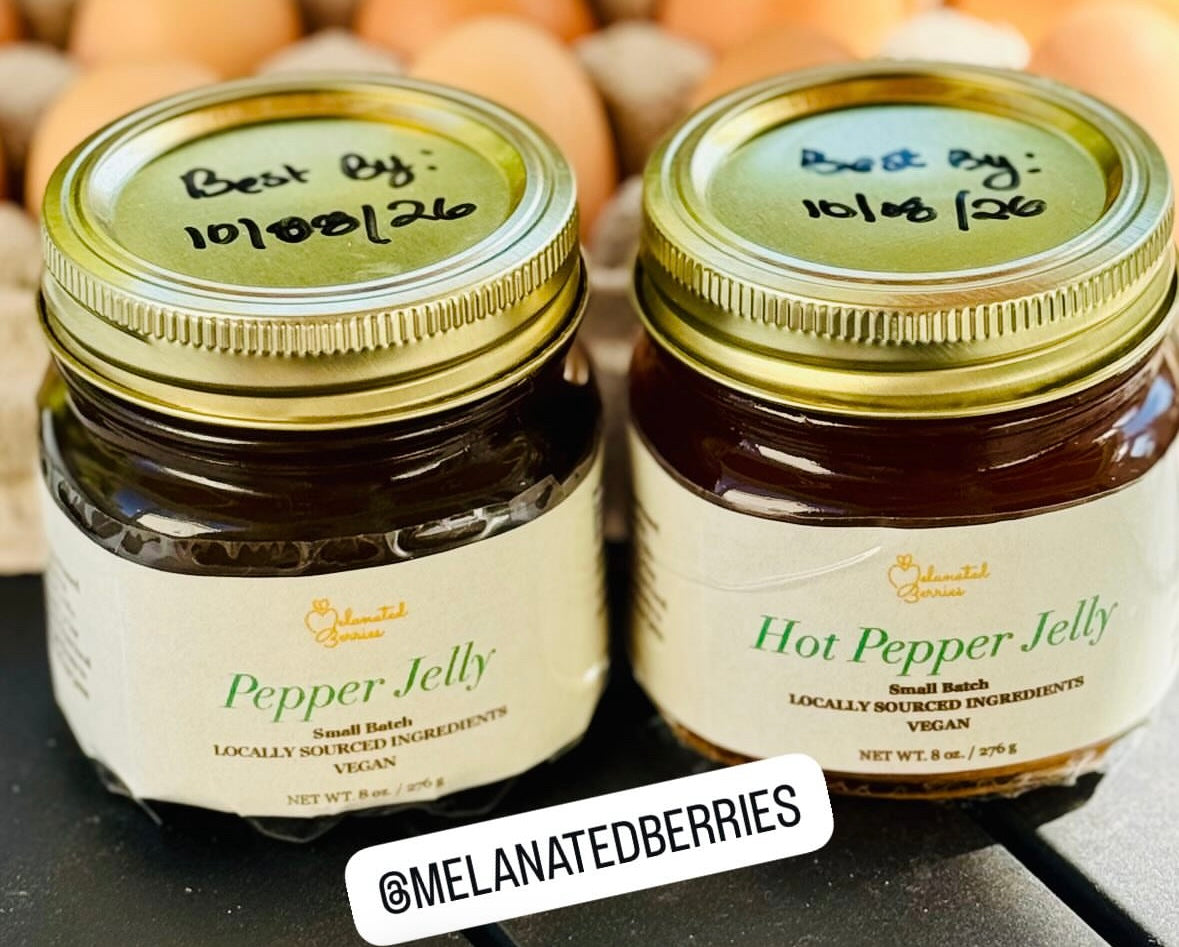 Best By:
10/08/26
Best By:
10/08/26
Melanated
Berries
Pepper Jelly
Small Batch
LOCALLY SOURCED INGREDIENTS
VEGAN
NET WT. 8 oz. / 276 g
Melanated
Berries
Hot Pepper Jelly
Small Batch
LOCALLY SOURCED INGREDIENTS
VEGAN
NET WT. 8 oz. / 276 g
@MELANATEDBERRIES